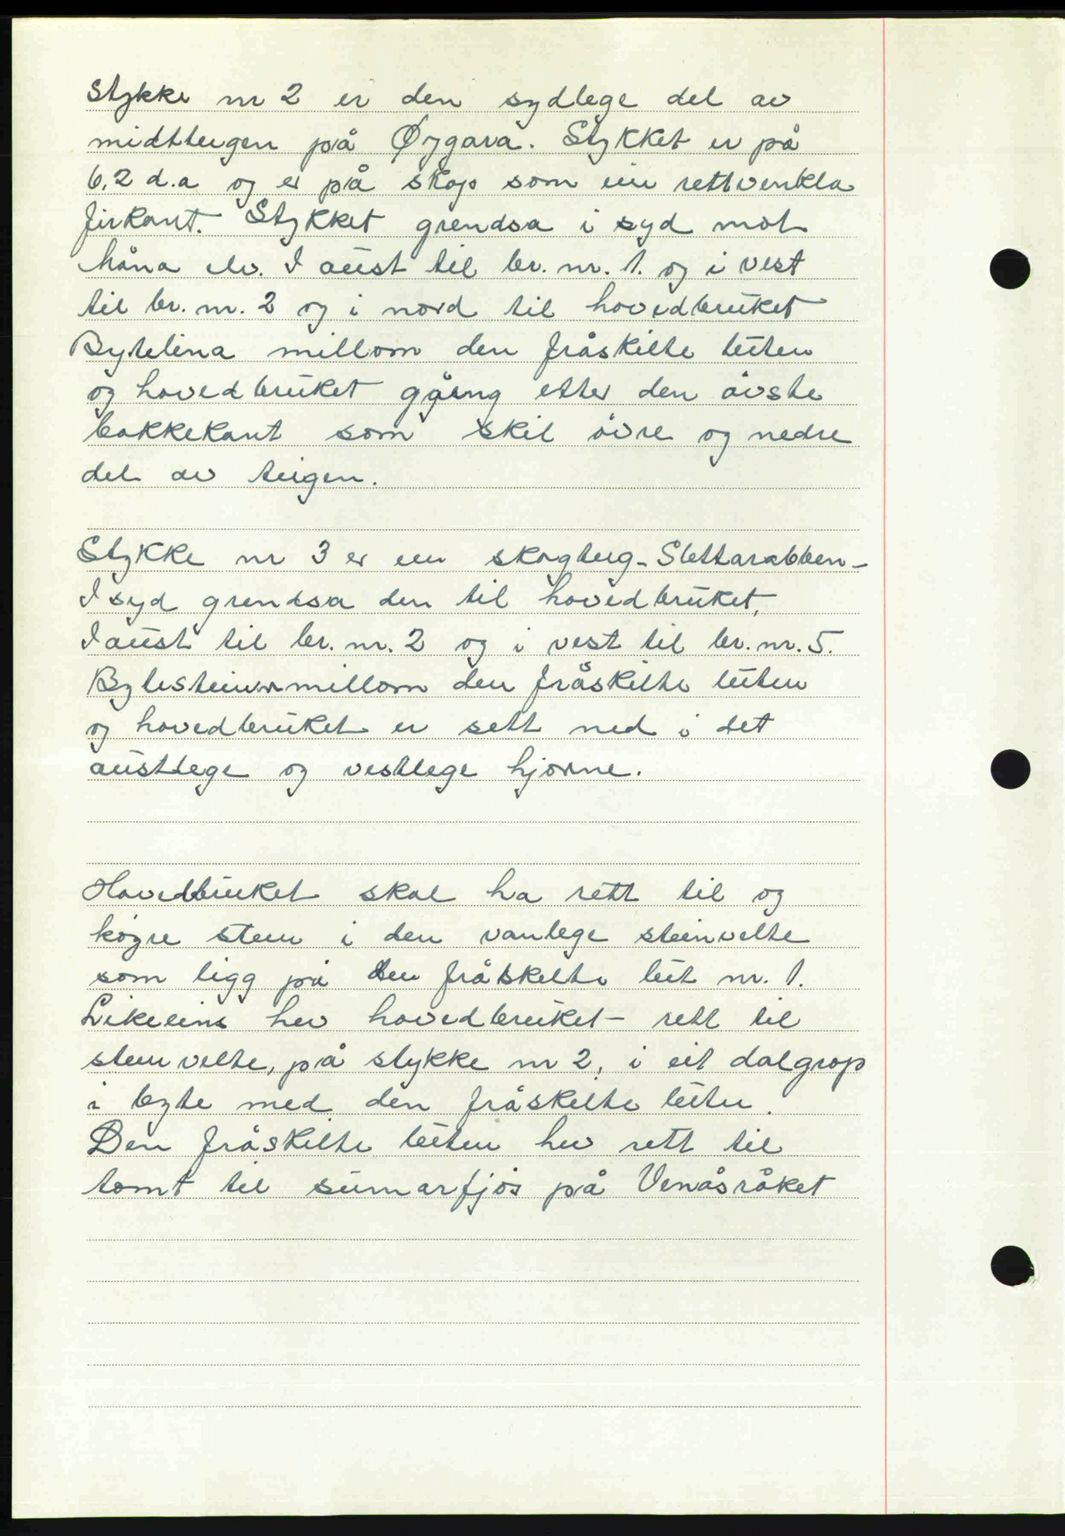 Stykke nr 2 er den sydlege del av
midtteigen på Øygara. Stykket er på
6,2 d.a og er på skap som ein rettvenkla
firkant. Stykket grendsa i syd mot
håna elv. I aust til br. nr. 1. og i vest
til br. nr. 2 og i nord til hovedbruket
Bytelina millom den fråskilte teiten
og hovedbruket gjeng etter den øvste
bakkekant som skil øvre og nedre
del av teigen.
Stykke nr 3 er ein skogteig - Slettarabben -
I syd grendsa den til hovedbruket,
I aust til br. nr. 2 og i vest til br. nr. 5.
Bytesteinar millom den fråskilte teiten
og hovedbruket er sett ned i det
austlege og vestlege hjørne.
Hovedbruket skal ha rett til og
køyre stein i den vanlege steinvelte
som ligg på den fråskilte teit nr. 1.
Likeeins hev hovedbruket - rett til
steinvelte, på stykke nr 2, i eit dalgrop
i byte med den fråskilte teiten.
Den fråskilte teiten hev rett til
tomt til sumarfjøs på Venåsråket